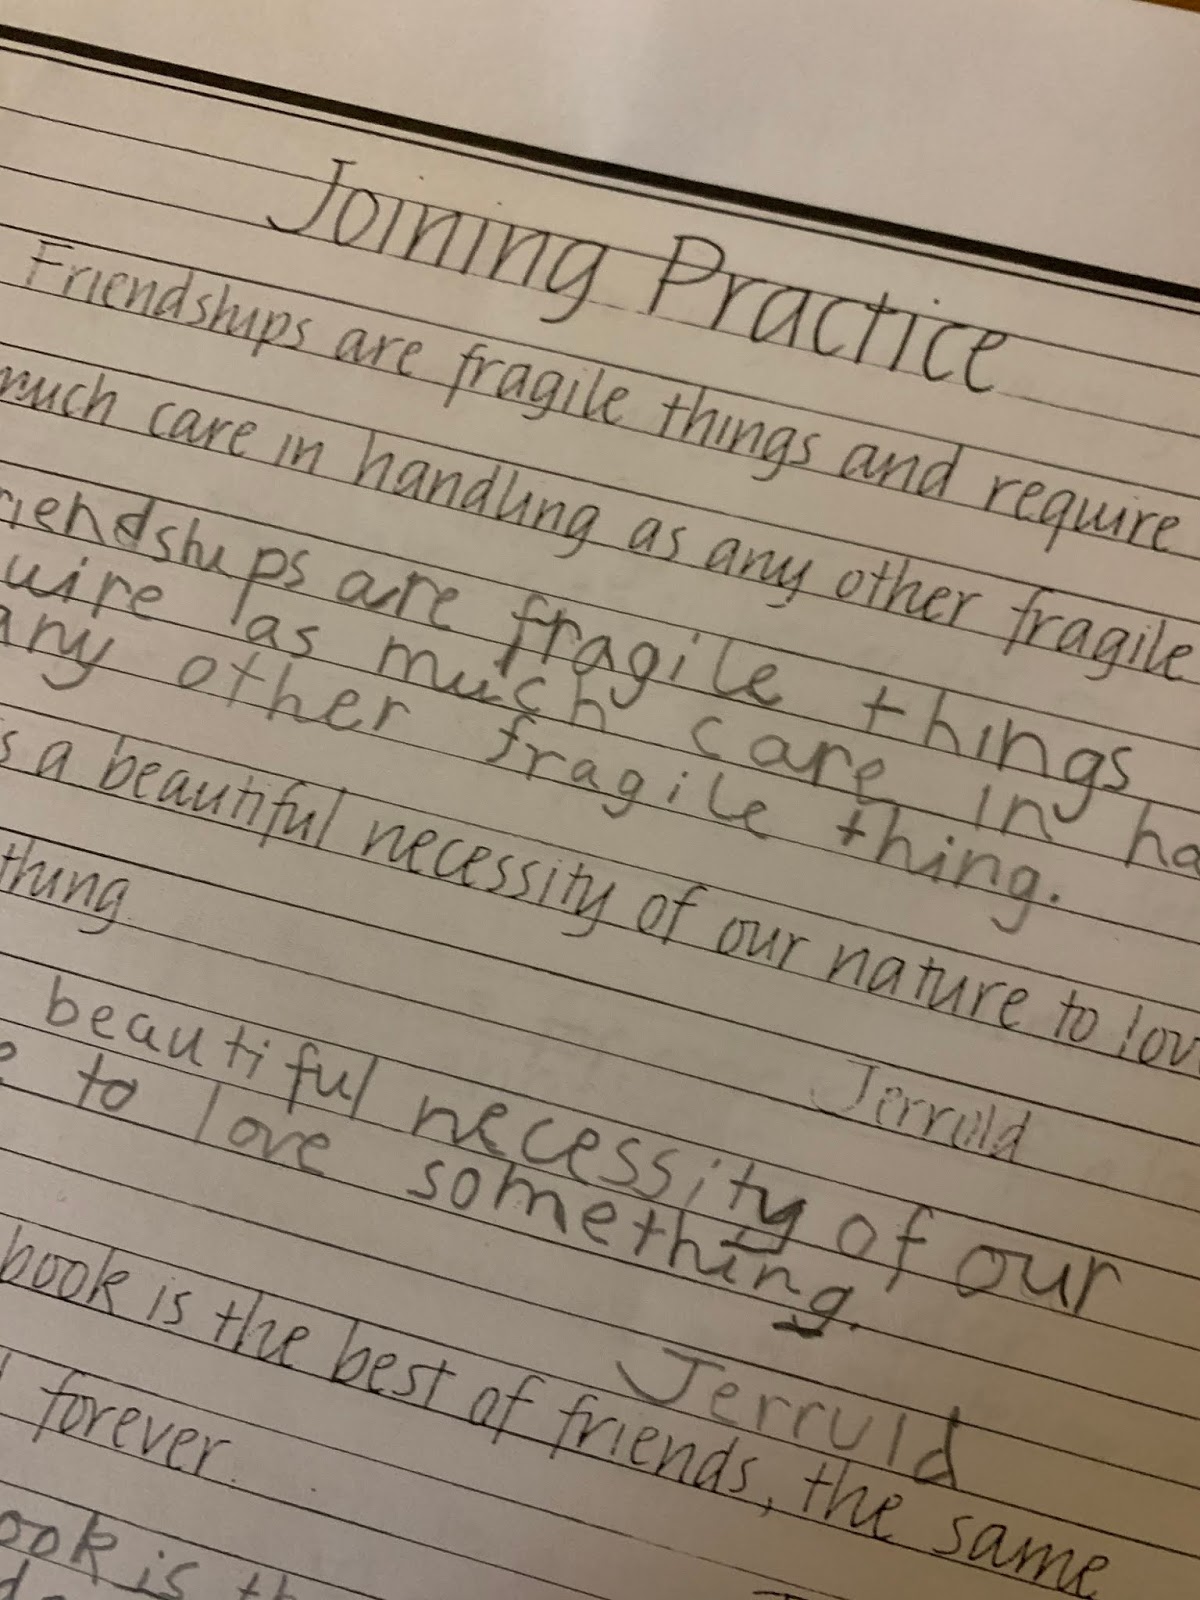 Joining Practice
Friendships are fragile things and require
much care in handling as any other fragile
riendships are fragile things
uire as much care in ha
any other fragile thing.
s a beautiful necessity of our nature to lov
thing
Jerruld
beautiful necessity of our
e to love something.
Jerruld
book is the best of friends, the same
forever.
ook is th